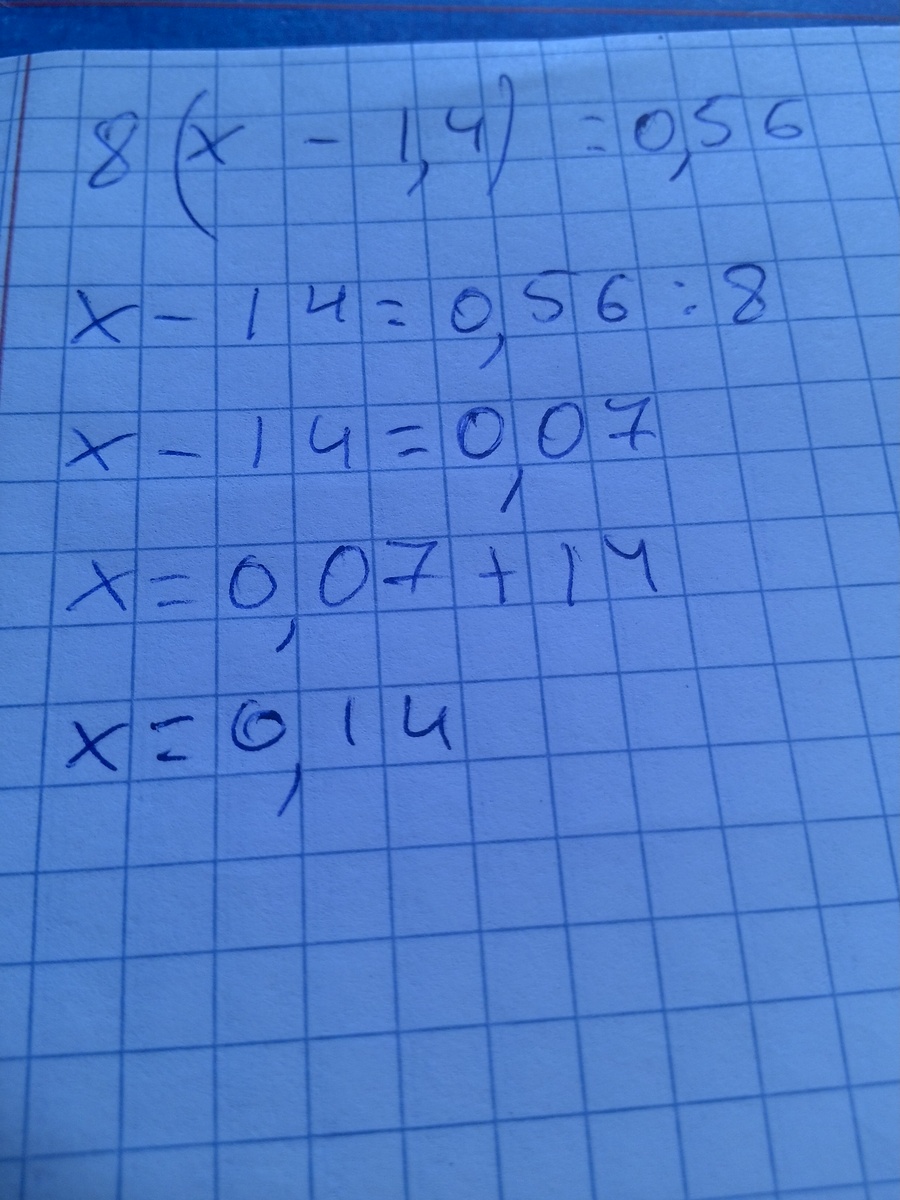 8(x - 1,4) = 0,56
x - 14 = 0,56 : 8
x - 14 = 0,07
x = 0,07 + 14
x = 0,14